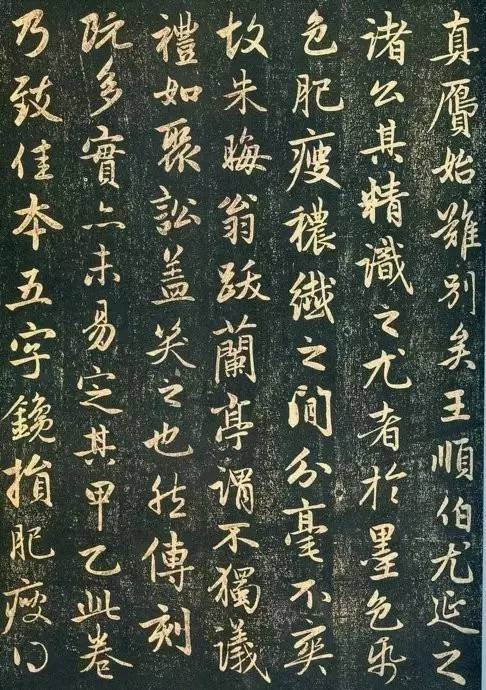 真贋始難別矣王順伯尤延之
諸公其精識之尤者於墨色紙
色肥瘦穠纖之間分毫不爽
故朱晦翁跋蘭亭謂不獨議
禮如聚訟盖笑之也然傳刻
既多實亦未易定其甲乙此卷
乃致佳本五字鑱損肥瘦